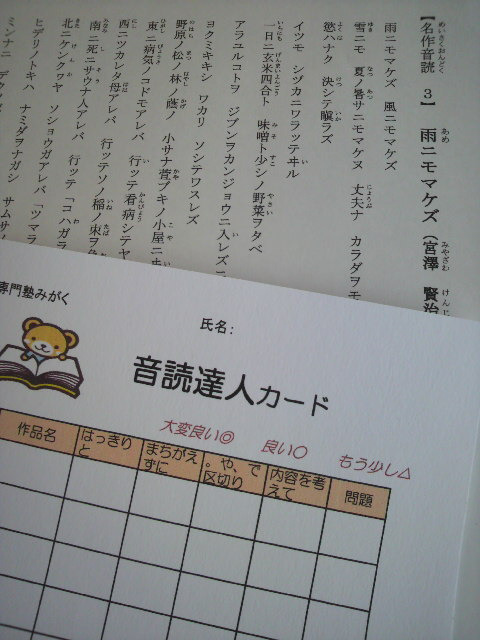 【名作音読 3】 雨ニモマケズ（宮澤 賢治
雨ニモマケズ 風ニモマケズ
雪ニモ 夏ノ暑サニモマケヌ 丈夫ナ カラダヲモ
慾ハナク 決シテ瞋ラズ
イツモ シヅカニワラッテヰル
一日ニ玄米四合ト 味噌ト少シノ野菜ヲタベ
アラユルコトヲ ジブンヲカンジョウニ入レズニ
ヨクミキキシ ワカリ ソシテワスレズ
野原ノ松ノ林ノ蔭ノ 小サナ萱ブキノ小屋ニ
東ニ病気ノコドモアレバ 行ッテ看病シテヤ
西ニツカレタ母アレバ 行ッテソノ稲ノ束ヲ
南ニ死ニサウナ人アレバ 行ッテ「コハガラ
北ニケンクヮヤ ソショウガアレバ「ツマラ
ヒデリノトキハ ナミダヲナガシ サムサノ
ミンナニ デク
専門塾みがく
氏名：
音読達人カード
大変良い◎ 良い○ もう少し△
作品名 はっきりと まちがえずに 。や、で区切り 内容を考えて 問題